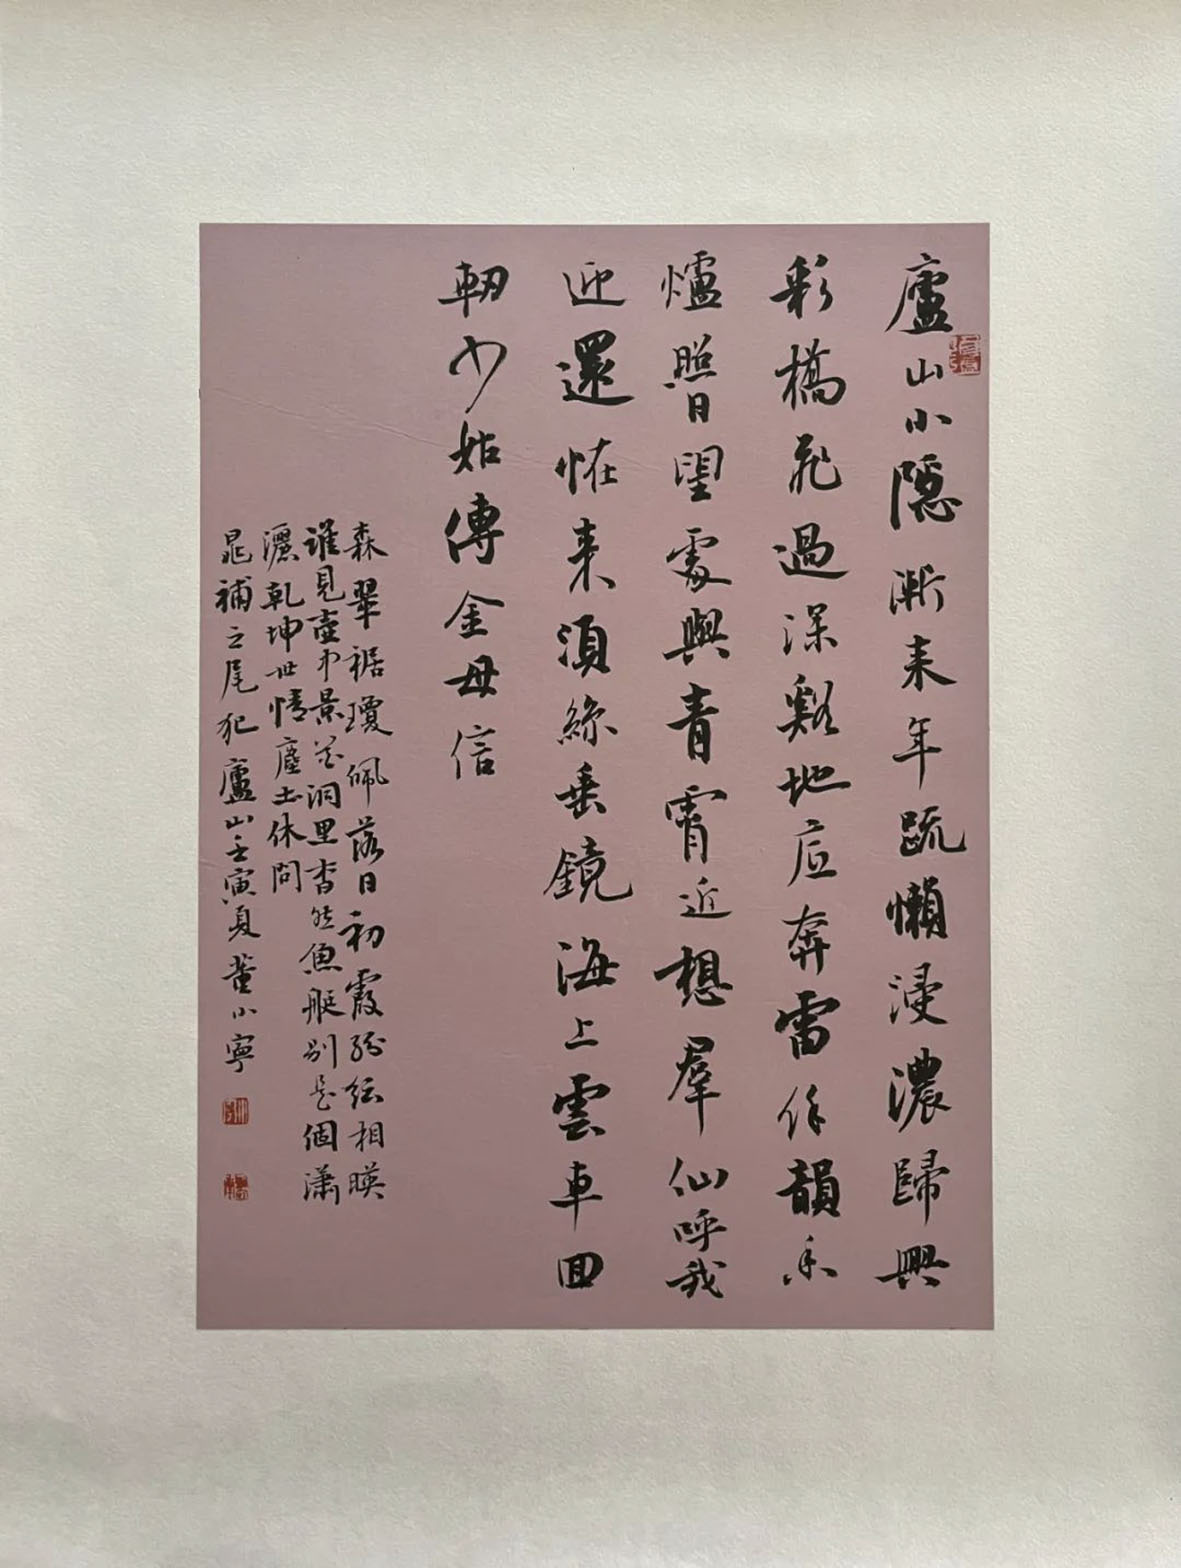 廬山小隱漸来年疏懶浸濃歸興
彩橋飛過深谿地底奔雷餘韻香
爐照日望處與青霄近想羣仙呼我
迎還怪来須絲垂鏡海上雲車回
軔少姑傳金母信
森翠裾瓊佩落日初霞紛紜相暎
誰見壺中景花洞里杳然漁艇别是個瀟
灑乾坤世情塵土休問
晁補之尾犯廬山壬寅夏董小寧